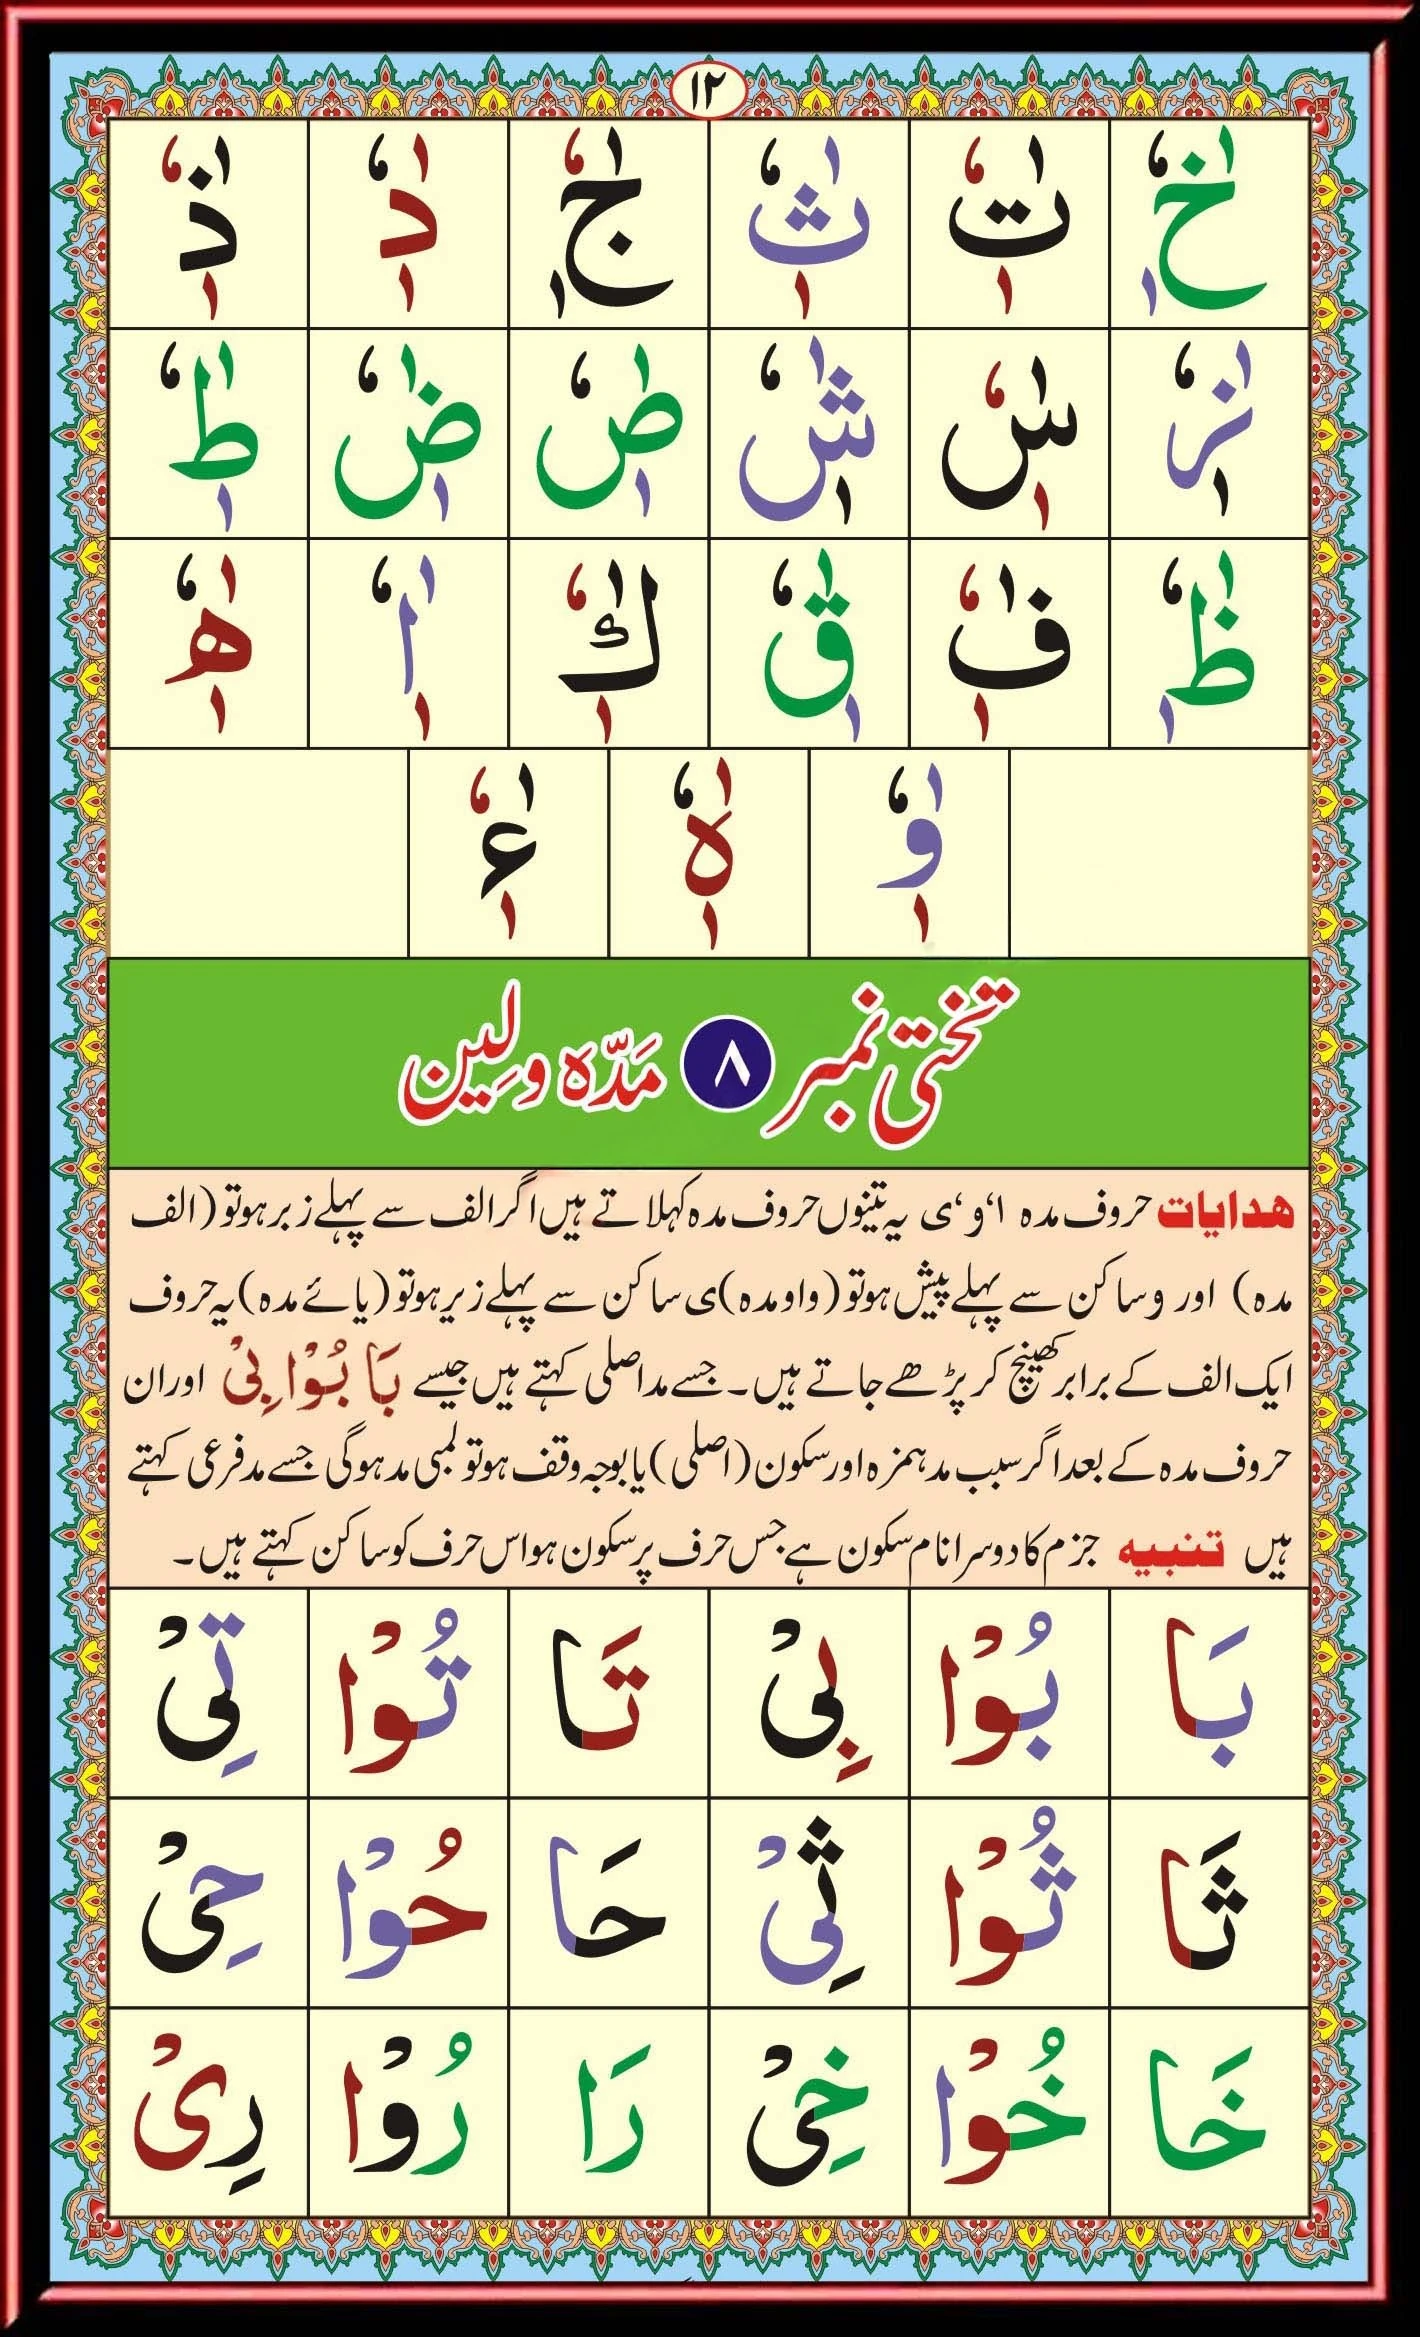 ١٢
خٰ خٖ خٗ تٰ تٖ تٗ ثٰ ثٖ ثٗ جٰ جٖ جٗ دٰ دٖ دٗ ذٰ ذٖ ذٗ
زٰ زٖ زٗ سٰ سٖ سٗ شٰ شٖ شٗ صٰ صٖ صٗ ضٰ ضٖ ضٗ طٰ طٖ طٗ
ظٰ ظٖ ظٗ فٰ فٖ فٗ قٰ قٖ قٗ كٰ كٖ كٗ اٰ اٖ اٗ ھٰ ھٖ ھٗ
وٰ وٖ وٗ هٰ هٖ هٗ ءٰ ءٖ ءٗ
تختی نمبر ٨ مَدّہ و لِین
هدایات حروف مدہ ا‘و‘ی یہ تینوں حروف مدہ کہلاتے ہیں اگر الف سے پہلے زبر ہو تو (الف
مدہ) اور و ساکن سے پہلے پیش ہو تو (واو مدہ) ی ساکن سے پہلے زیر ہو تو (یائے مدہ) یہ حروف
ایک الف کے برابر کھینچ کر پڑھے جاتے ہیں۔ جسے مد اصلی کہتے ہیں جیسے بَا بُوْا بِیْ اور ان
حروف مدہ کے بعد اگر سبب مد ہمزہ اور سکون (اصلی) یا بوجہ وقف ہو تو لمبی مد ہوگی جسے مد فرعی کہتے
ہیں تنبیه جزم کا دوسرا نام سکون ہے جس حرف پر سکون ہو اس حرف کو ساکن کہتے ہیں۔
بَا بُوْا بِیْ تَا تُوْا تِیْ
ثَا ثُوْا ثِیْ حَا حُوْا حِیْ
خَا خُوْا خِیْ رَا رُوْا رِیْ